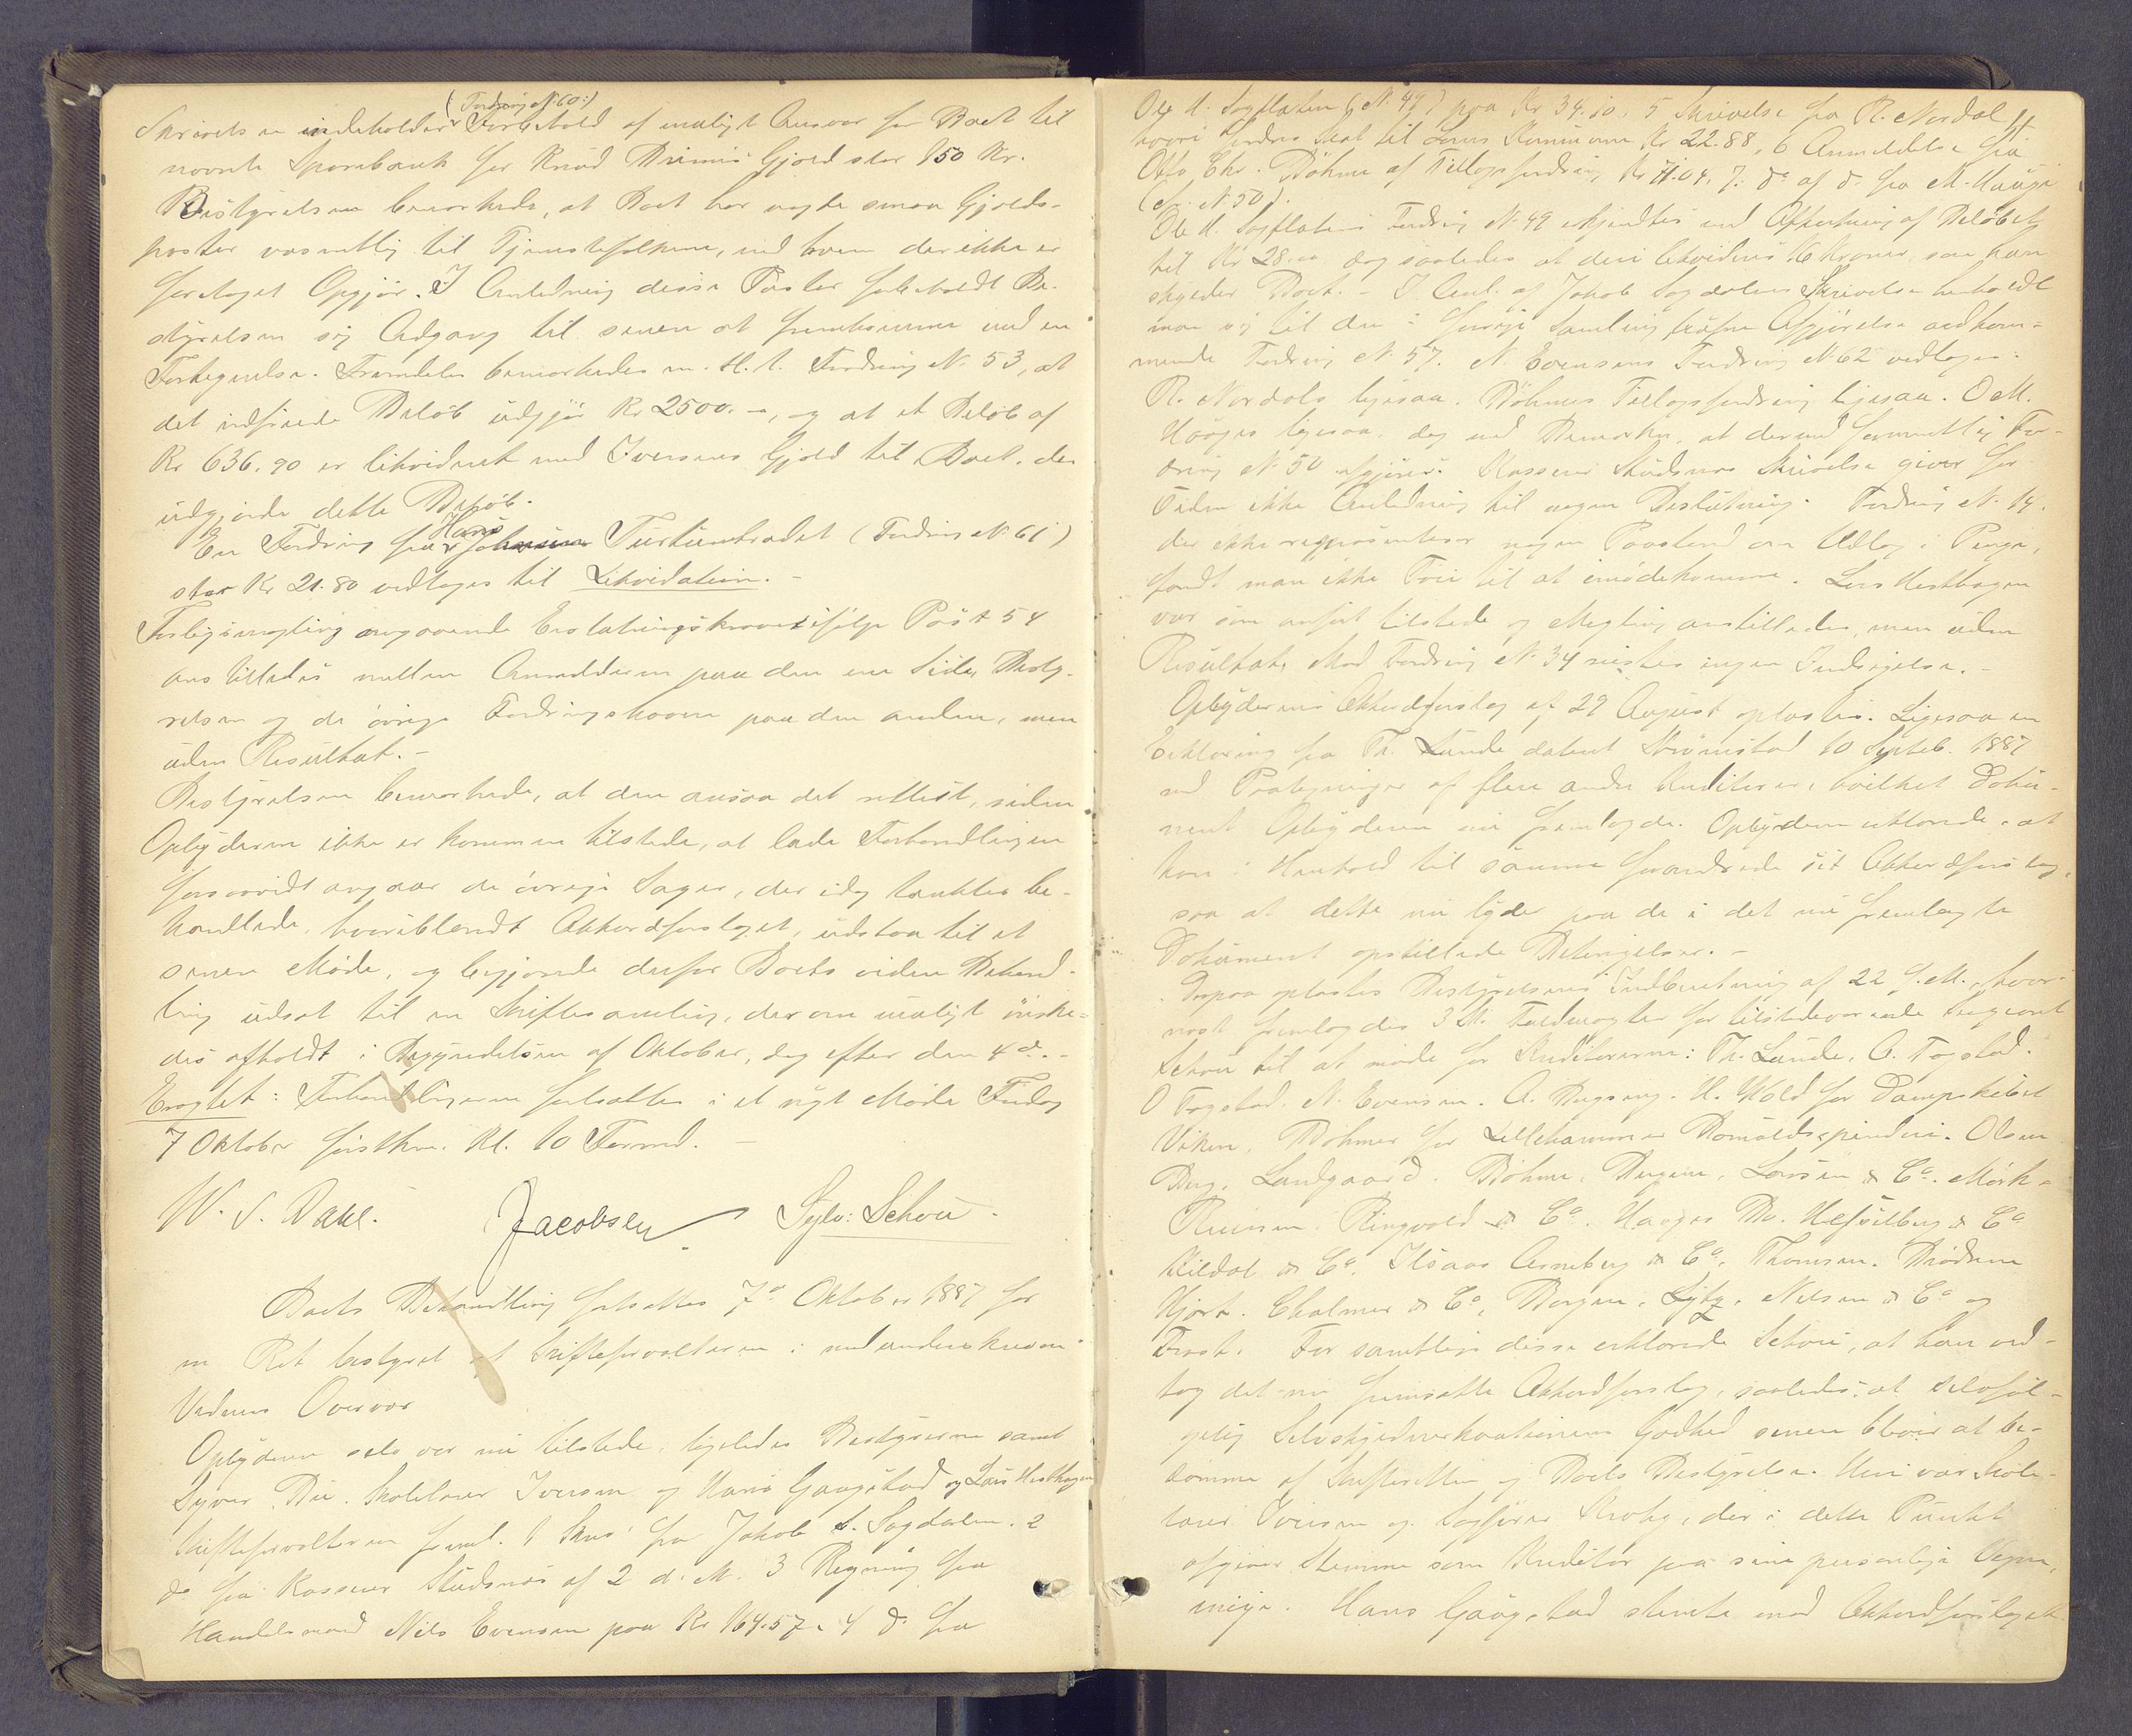 (Fordring N. 60:)
Skrivelsen indeholder Forbehold af muligt Ansvar for Boet til
nævnte Sparebank for Knud Gjæld stor 150 Kr.
Bestyrelsen bemærkede, at Boet har nogle smaa Gjælds-
poster væsentlig til Tjenestefolkene, med hvem der ikke er
foretaget Opgjør. I Anledning disse Poster forbeholdt Be-
styrelsen sig Adgang til senere at fremkomme med en
Fortegnelse. Fremdeles bemærkedes m. H. t. Fordring N. 53, at
det indførte Beløb udgjør Kr 2500.-, og at et Beløb af
Kr 636.90 er likvideret med Iversens Gjæld til Boet, der
udgjorde dette Beløb.
En Fordring fra Hans Turtumbradet (Fordring N. 61)
stor Kr 21.80 vedtages til Likvidation. -
Forligsmægling angaaende Erstatningskravet ifølge Post 54
anstilledes mellem Anmelderen paa den ene Side, Besty-
relsen og de øvrige Fordringshavere paa den anden, men
uden Resultat. -
Bestyrelsen bemærkede, at den ansaa det rettest, siden
Opbyderen ikke er kommen tilstede, at lade Forhandlingen
forsaavidt angaar de øvrige Sager, der idag tænktes be-
handlede, hvoriblandt Akkordforslaget, udstaa til et
senere Møde, og begjærede derfor Boets videre Behand-
ling udsat til en Skiftesamling, der om muligt ønske-
des afholdt i Begyndelsen af Oktober, dog efter den 4de. -
Eragtet: Forhandlingerne fortsættes i et nyt Møde Fredag
7 Oktober førstkm. Kl. 10 Formd. -
W. S. Dahl. Jacobsen Sylv: Schou.
Boets Behandling fortsattes 7de Oktober 1887 for
en Ret bestyret af Skifteforvalteren i medunderskrevne
Vidners Overvær
Opbyderen selv var nu tilstede, ligeledes Bestyrerne samt
Syver Bu. Skolelærer Iversen og Hans Gaagstad og Lars Hesthagen
Skifteforvalteren freml. 1 Skriv. fra Jakob S. Sogdalen. 2
do fra Kasserer Studsnæs af 2 d. M. 3 Regning fra
Handelsmand Nils Evensen paa Kr 164.57. 4 do fra
Ole H. Sogflaten (N. 49) paa Kr 34.10. 5 Skrivelse fra R. Nordal
hvori fordres Skat til Kommune Kr 22.88, 6 Anmeldelse fra
Otto Chr. Bøhmer af Tillægsfordring Kr 41.04, 7: do af do fra M. Haage
(cfr. N. 50).
Ole H. Sogflatens Fordring N. 49 erkjendtes med Afkortning af Beløbet
til Kr 28.00 dog saaledes at deri likvideres 16 Kroner, som han
skylder Boet. - I Anl. af Jakob Sogdalens Skrivelse henholdt
man sig til den i forrige Samling trufne Afgjørelse vedkom-
mende Fordring N. 57. N. Evensens Fordring N. 62 vedtages.
R. Nordals ligesaa. Bøhmers Tillægsfordring ligesaa. O. M.
Haages ligesaa, dog med Bemærkn. at dermed samtlig For-
dring N. 50 afgjøres. Kasserer Studsnæs Skrivelse giver for
Tiden ikke Anledning til nogen Beslutning. Fordring N. 14,
der ikke repræsenterer nogen Paastand om Udlæg i Penge,
fandt man ikke Føie til at imødekomme. Lars Hesthagen
var som anført tilstede og Mægling anstilledes, men uden
Resultat. Mod Fordring N. 34 reistes ingen Indsigelse. -
Opbyderens Akkordforslag af 29 August oplæstes. Ligesaa en
Erklæring fra Th. Lunde dateret Strømstad 10 Septeb. 1887
med Paategninger af flere andre Kreditorer, hvilket Doku-
ment Opbyderen nu fremlagde. Opbyderen erklærede, at
han i Henhold til samme forandrede sit Akkordforslag,
saa at dette nu lyder paa de i det nu fremlagte
Dokument opstillede Betingelser. -
Derpaa oplæstes Bestyrelsens Indberetning af 22 f. M., hvor-
næst fremlagdes 3 St. Fuldmagter for tilstedeværende
Schou til at møde for Kreditorerne: Th. Lunde, A. Fogstad.
O Fogstad. N. Evensen. A. Bugsrug. H. Wold for Dampskibet
Viken, Bøhmer for Lillehammer Bomuldsspinderi. Olsen
Berg, Landgaard. Bøhmer, Bergene, Larsen & Co. Mørk-
Ringvold & Co. Haages Bo. Hesselberg & Co
Kildal & Co. Isaac Arneberg & Co. Thomsen. Brødrene
Hjort. Chalmer & Co, Borgen, Lytz, Nilsen & Co og
Frost. For samtlige disse erklærede Schou, at han ved-
tog det nu fremsatte Akkordforslag, saaledes: at selvføl-
gelig Selvskyldnerkautionens Godhed senere bliver at be-
dømme af Skifteretten og Boets Bestyrelse. Heri var Skole-
lærer Iversen og Sagfører Skotg, der i dette Punkt
afgiver Stemme som Kreditor paa sine personlige Vegne,
enige. Hans Gaagstad stemte mod Akkordforslaget